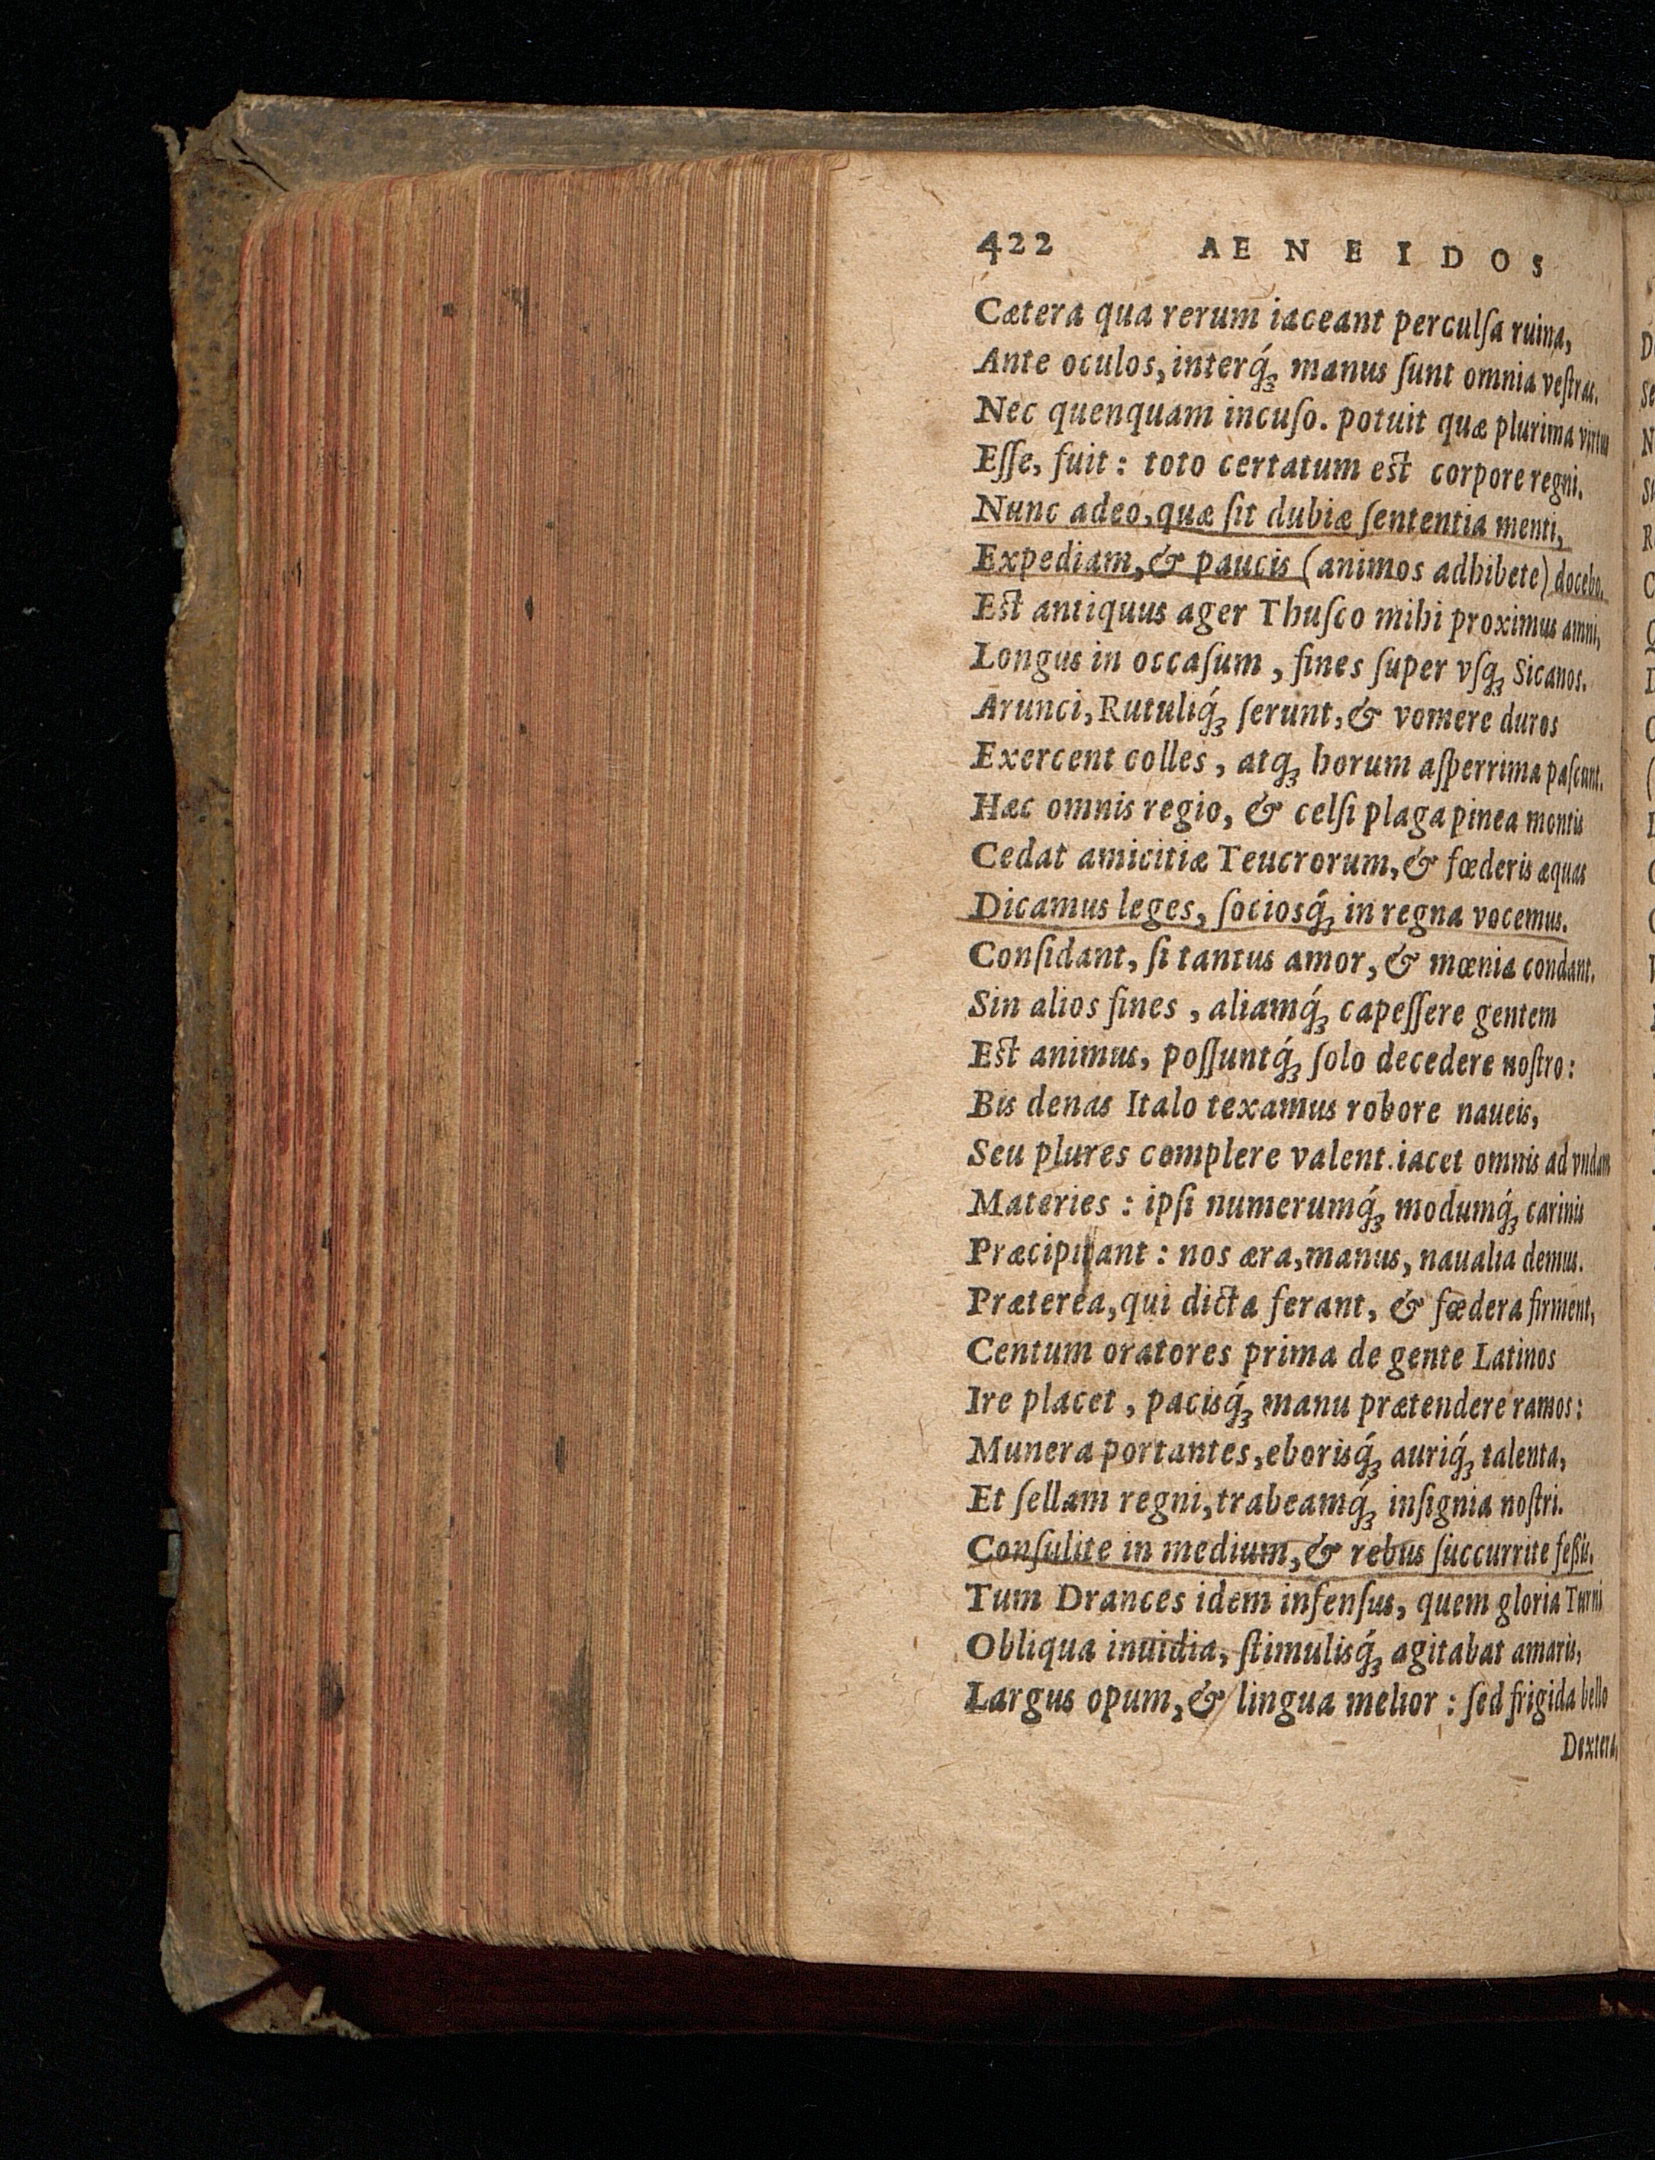 422 AENEIDOS
Cætera qua rerum iaceant perculſa ruina,
Ante oculos, interq́ꝫ manus ſunt omnia veſtras.
Nec quenquam incuſo. potuit quæ plurima virtus
Eſſe, fuit: toto certatum eſt corpore regni.
Nunc adeo, quæ ſit dubiæ ſententia menti,
Expediam, & paucis (animos adhibete) docebo.
Eſt antiquus ager Thuſco mihi proximus amni,
Longus in occaſum, fines ſuper vſqꝫ Sicanos.
Arunci, Rutuliq́ꝫ ſerunt, & vomere duros
Exercent colles, atqꝫ horum aſperrima paſcunt.
Hæc omnis regio, & celſi plaga pinea montis
Cedat amicitiæ Teucrorum, & fœderis æquas
Dicamus leges, ſociosq́ꝫ in regna vocemus.
Conſidant, ſi tantus amor, & mœnia condant.
Sin alios fines, aliamq́ꝫ capeſſere gentem
Eſt animus, poſſuntq́ꝫ ſolo decedere noſtro:
Bis denas Italo texamus robore naueis,
Seu plures complere valent. iacet omnis ad vndam
Materies: ipſi numerumq́ꝫ modumq́ꝫ carinis
Præcipiant: nos æra, manus, naualia demus.
Præterea, qui dicta ferant, & fœdera firment,
Centum oratores prima de gente Latinos
Ire placet, pacisq́ꝫ manu prætendere ramos:
Munera portantes, eborisq́ꝫ auriq́ꝫ talenta,
Et ſellam regni, trabeamq́ꝫ inſignia noſtri.
Conſulite in medium, & rebus ſuccurrite feßis.
Tum Drances idem infenſus, quem gloria Turni
Obliqua inuidia, ſtimulisq́ꝫ agitabat amaris,
Largus opum, & lingua melior: ſed frigida bello
Dextera,